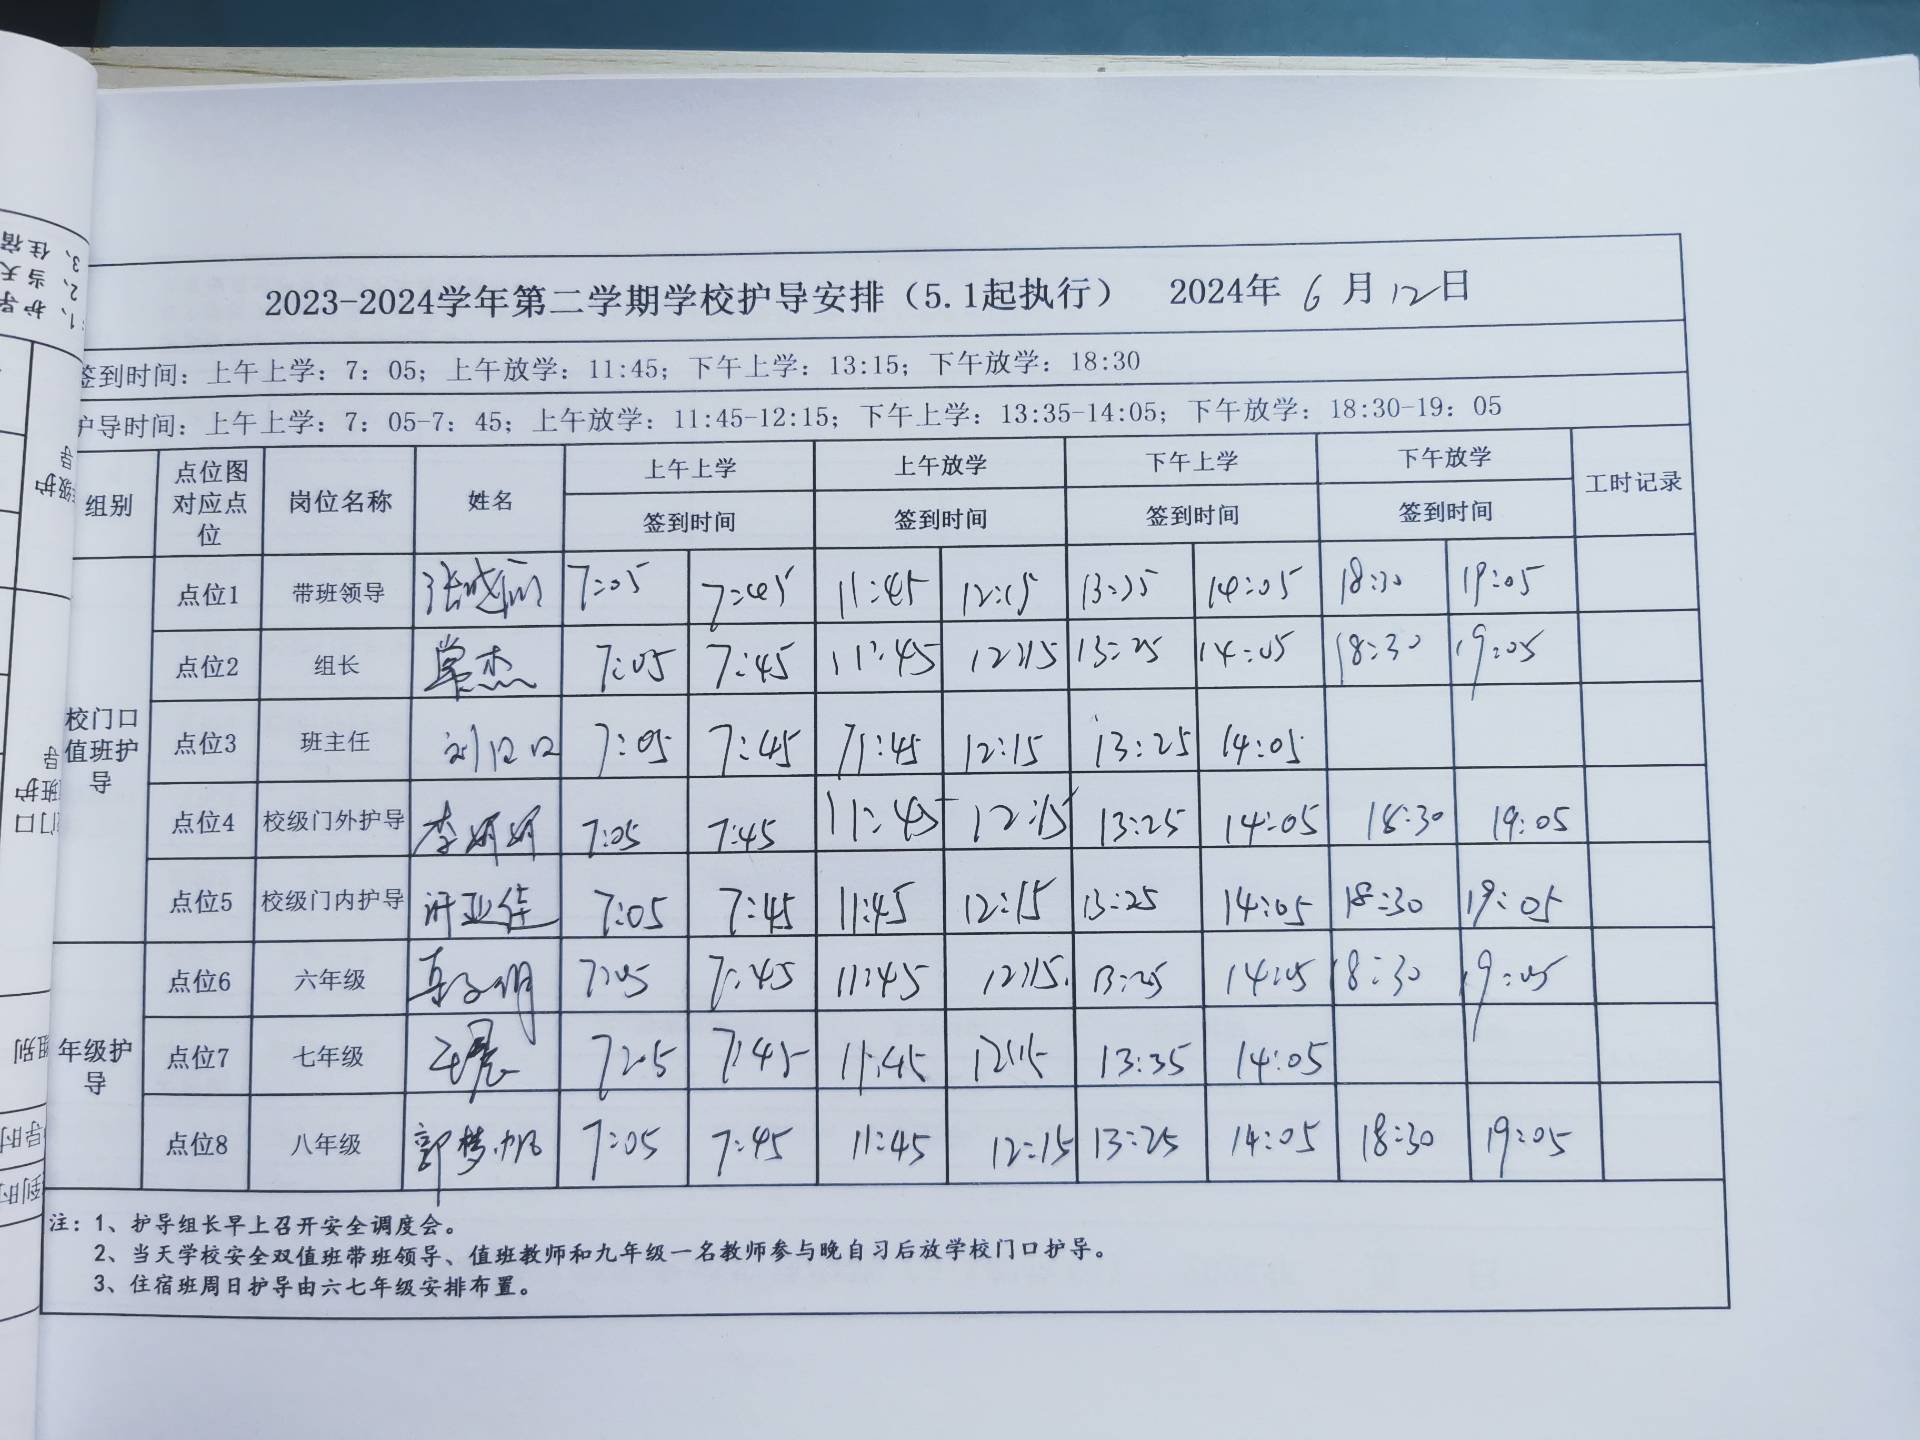 2023-2024学年第二学期学校护导安排（5.1起执行） 2024年 6 月 12 日
签到时间：上午上学：7：05；上午放学：11:45；下午上学：13:15；下午放学：18:30
护导时间：上午上学：7：05-7：45；上午放学：11:45-12:15；下午上学：13:35-14:05；下午放学：18:30-19：05
组别 点位图对应点位 岗位名称 姓名 上午上学 上午放学 下午上学 下午放学 工时记录
签到时间 签到时间 签到时间 签到时间
校门口值班护导
点位1 带班领导 7:05 7:45 11:45 12:15 14:05 18:30 19:05
点位2 组长 常杰 7:05 7:45 11:45 12:15 13:25 14:05 18:30 19:05
点位3 班主任 7:05 7:45 11:45 12:15 13:25 14:05
点位4 校级门外护导 李娟娟 7:05 7:45 11:45 12:15 13:25 14:05 18:30 19:05
点位5 校级门内护导 许亚佳 7:05 7:45 11:45 12:15 13:25 14:05 18:30 19:05
年级护导
点位6 六年级 7:05 7:45 11:45 12:15 13:25 14:05 18:30 19:05
点位7 七年级 7:45 11:45 12:15 13:35 14:05
点位8 八年级 郭梦帆 7:05 7:45 11:45 12:15 13:25 14:05 18:30 19:05
注：1、护导组长早上召开安全调度会。
2、当天学校安全双值班带班领导、值班教师和九年级一名教师参与晚自习后放学校门口护导。
3、住宿班周日护导由六七年级安排布置。